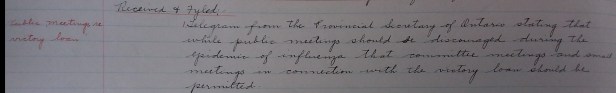 Received & Fyled.
Public meetings re
victory loan
Telegram from the Provincial Secretary of Ontario stating that
while public meetings should be discouraged during the
epidemic of influenza that committee meetings and small
meetings in connection with the victory loan should be
permitted